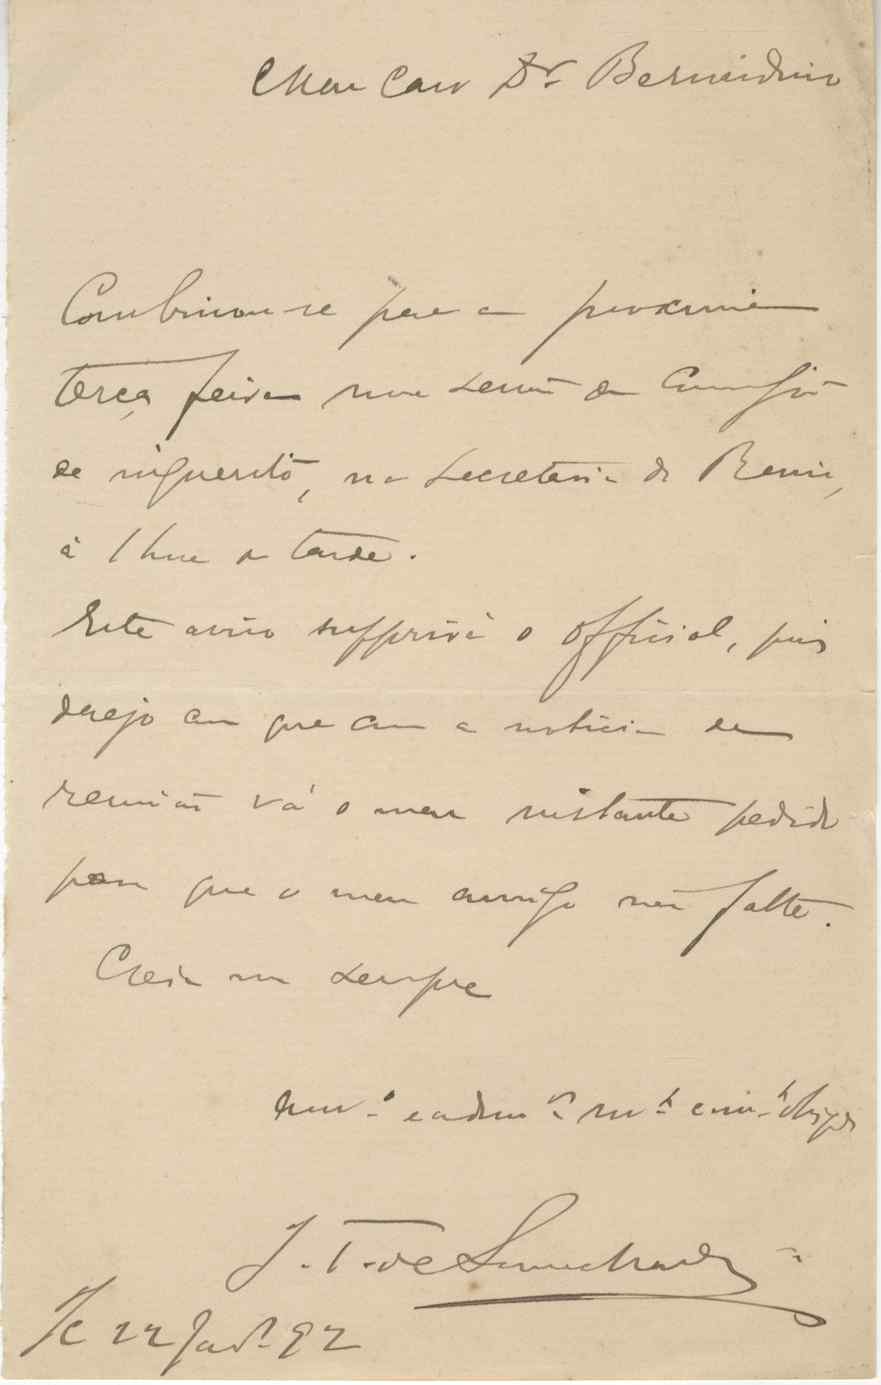 Meu Caro Dr Bernardino
Combinou-se para a proxima
terça feira uma sessão da Commissão
de inquerito, na Secretaria do Reino,
á 1 hora da tarde.
Este aviso supprirá o official, pois
desejo eu que com a noticia da
reunião vá o meu instante pedido
para que o meu amigo não falte.
Creia me sempre
e adm.or m.to
J. T. de
S/c 22 92